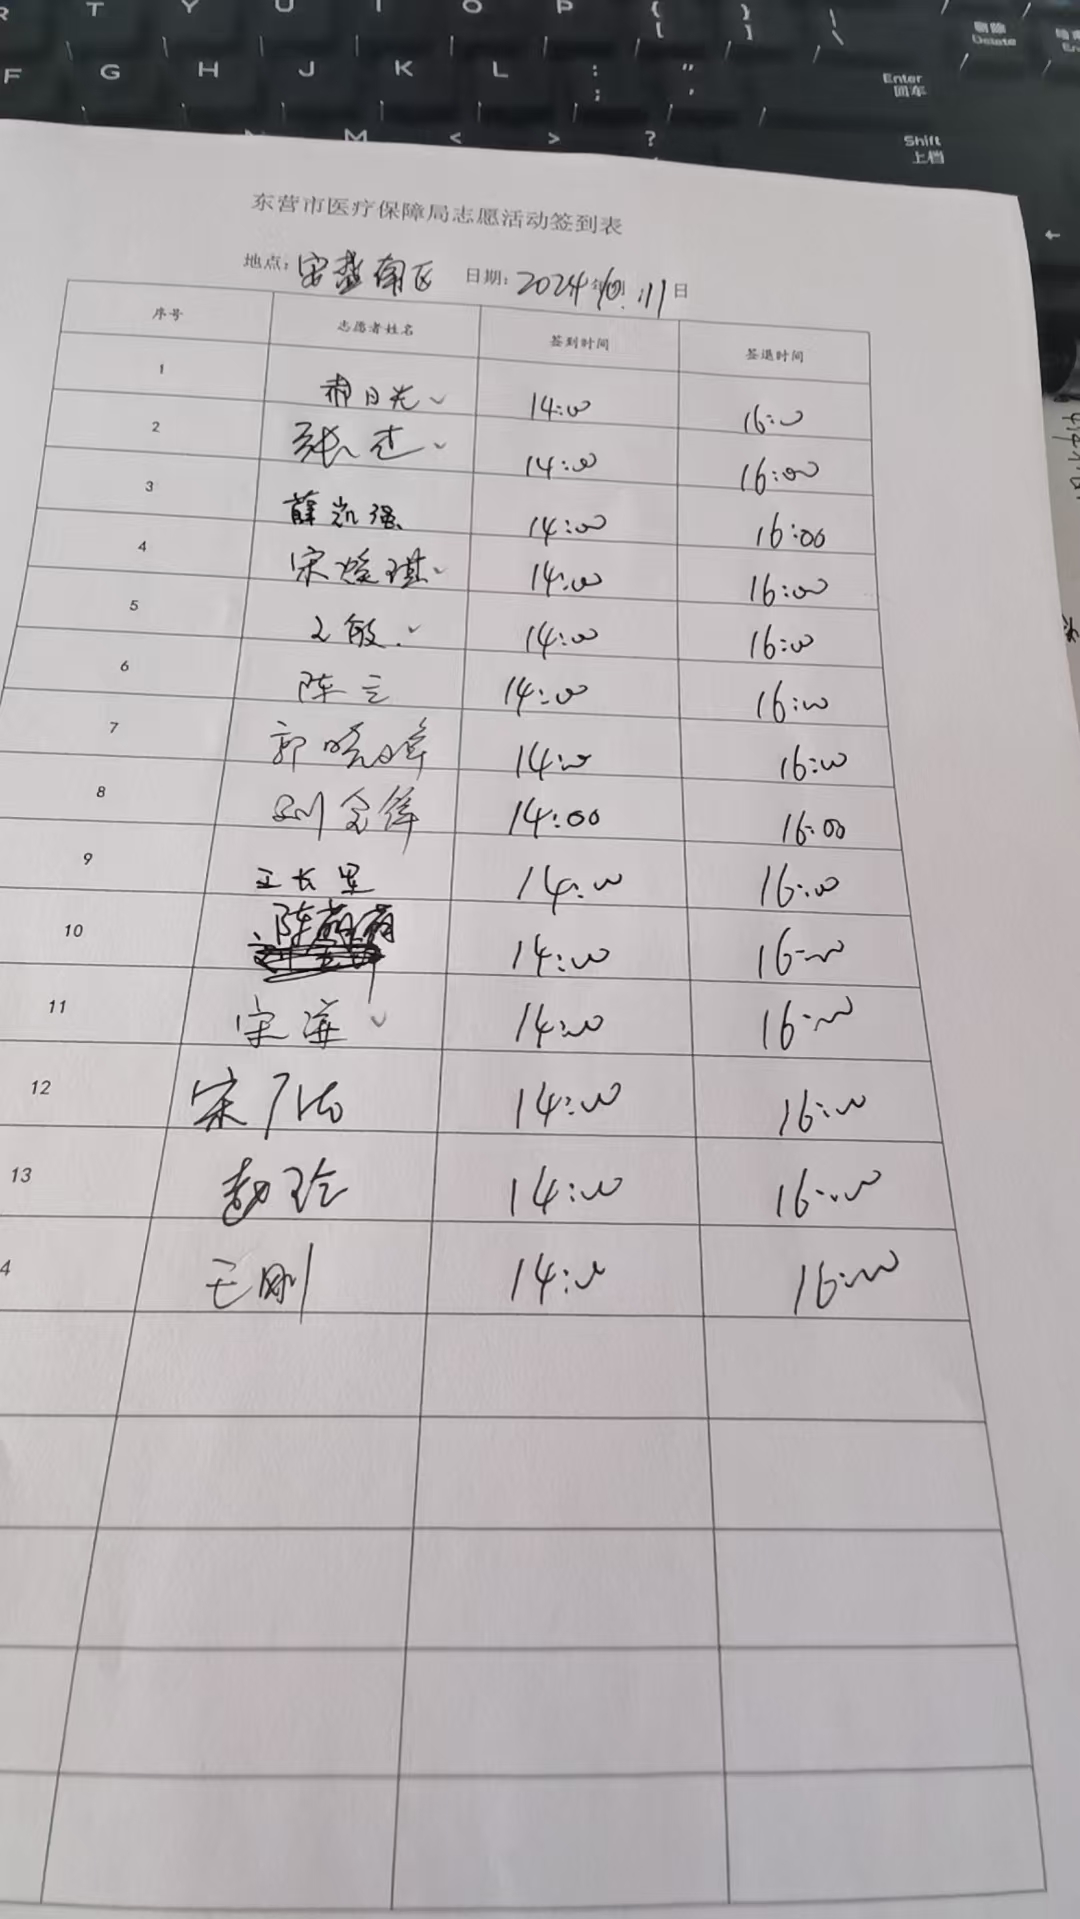 R T Y U I O P { [ } ] | \ 删除 Delete
F G H J K L : ; " ' Enter 回车
M < > ? Shift 上档
东营市医疗保障局志愿活动签到表
地点: 安泰南区 日期: 2024年10月11日
序号 志愿者姓名 签到时间 签退时间
1 郝日光 14:00 16:00
2 张杰 14:00 16:00
3 薛凯强 14:00 16:00
4 宋焓琪 14:00 16:00
5 敏 14:00 16:00
6 陈 14:00 16:00
7 郭晓峰 14:00 16:00
8 刘金锋 14:00 16:00
9 王长军 14:00 16:00
10 陈 14:00 16:00
11 宋海 14:00 16:00
12 宋 14:00 16:00
13 赵玲 14:00 16:00
4 王刚 14:00 16:00